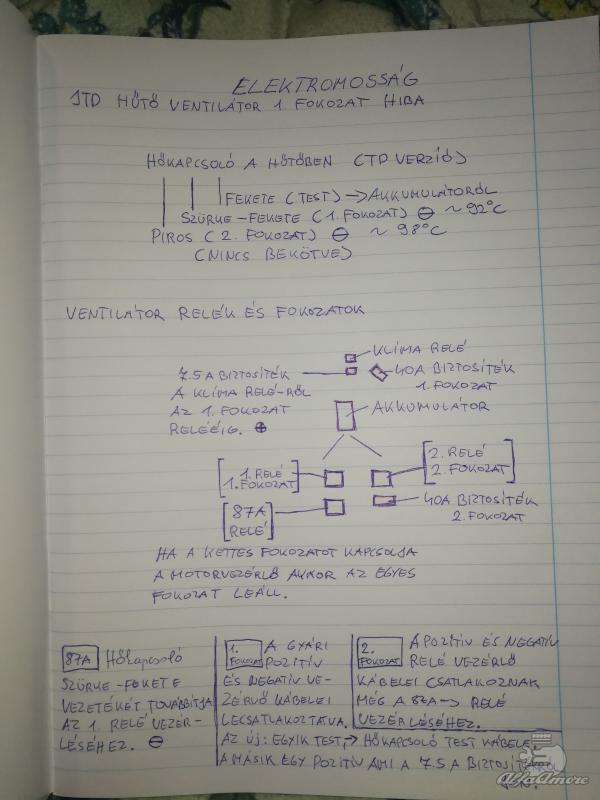 ELEKTROMOSSÁG
JTD HŰTŐ VENTILÁTOR 1. FOKOZAT HIBA
HŐKAPCSOLÓ A HŰTŐBEN (TD VERZIÓ)
FEKETE (TEST) → AKKUMULÁTORÓL
SZÜRKE-FEKETE (1. FOKOZAT) ⊖ ~92°C
PIROS (2. FOKOZAT) ⊖ ~98°C
(NINCS BEKÖTVE)
VENTILÁTOR RELÉK ÉS FOKOZATOK
KLÍMA RELÉ
7.5 A BIZTOSÍTÉK
A KLÍMA RELÉ-RŐL
AZ 1. FOKOZAT
RELÉÉIG. ⊕
40A BIZTOSÍTÉK
1. FOKOZAT
AKKUMULÁTOR
1. RELÉ
1. FOKOZAT
2. RELÉ
2. FOKOZAT
87A
RELÉ
40A BIZTOSÍTÉK
2. FOKOZAT
HA A KETTES FOKOZATOT KAPCSOLJA
A MOTORVEZÉRLŐ AKKOR AZ EGYES
FOKOZAT LEÁLL.
87A Hőkapcsoló
SZÜRKE-FEKETE
VEZETÉKÉT TOVÁBBÍTJA
AZ 1. RELÉ VEZÉR-
LÉSÉHEZ. ⊖
1. FOKOZAT A GYÁRI
POZITÍV
ÉS NEGATÍV VE-
ZÉRLŐ KÁBELEI
LECSATLAKOZTATVA.
2. FOKOZAT A POZITÍV ÉS NEGATÍV
RELÉ VEZÉRLŐ
KÁBELEI CSATLAKOZNAK
MÉG A 87A → RELÉ
VEZÉRLÉSÉHEZ.
AZ ÚJ: EGYIK TEST, → HŐKAPCSOLÓ TEST KÁBELE
A MÁSIK EGY POZITÍV AMI A 7.5 A BIZTOSÍTÉKRÓL
JÖN.
AlfaAmore